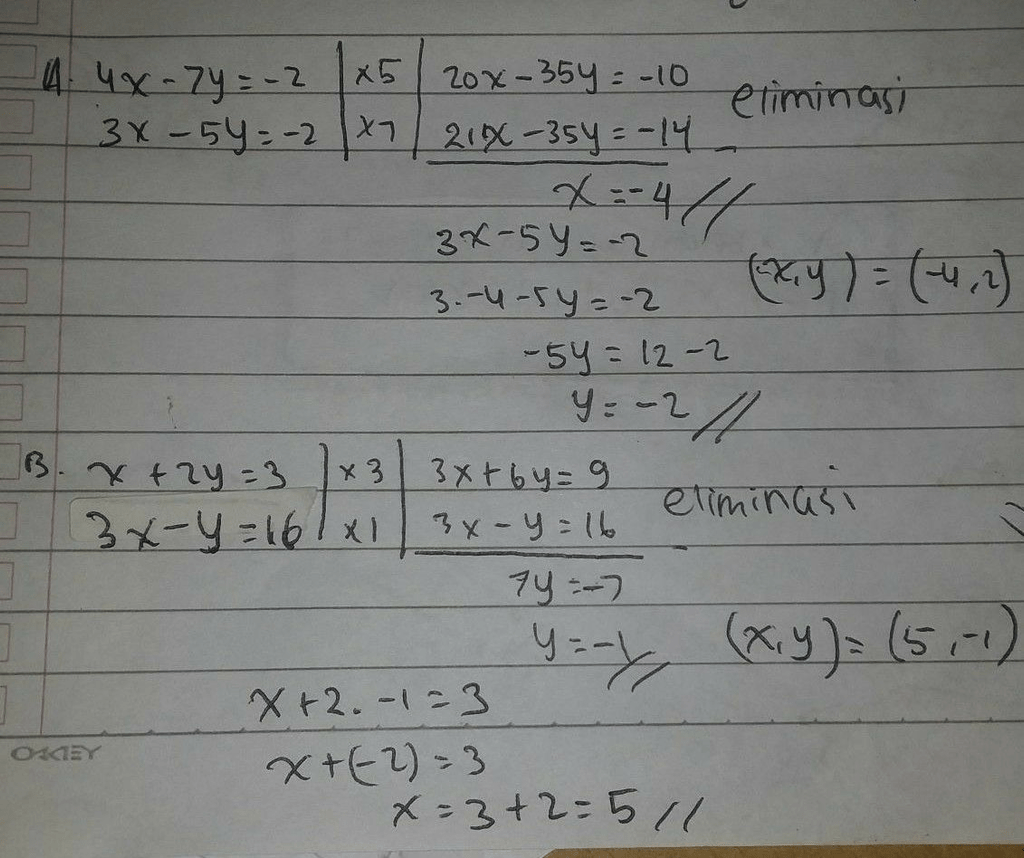 A. 4x - 7y = -2 | x5 | 20x - 35y = -10 eliminasi
3x - 5y = -2 | x7 | 21x - 35y = -14 -
x = -4 //
3x - 5y = -2
(x, y) = (-4, 2)
3. -4 - 5y = -2
-5y = 12 - 2
y = -2 //
B. x + 2y = 3 | x3 | 3x + 6y = 9 eliminasi
3x - y = 16 | x1 | 3x - y = 16 -
7y = -7
y = -1 // (x, y) = (5, -1)
x + 2. -1 = 3
OKEY
x + (-2) = 3
x = 3 + 2 = 5 //